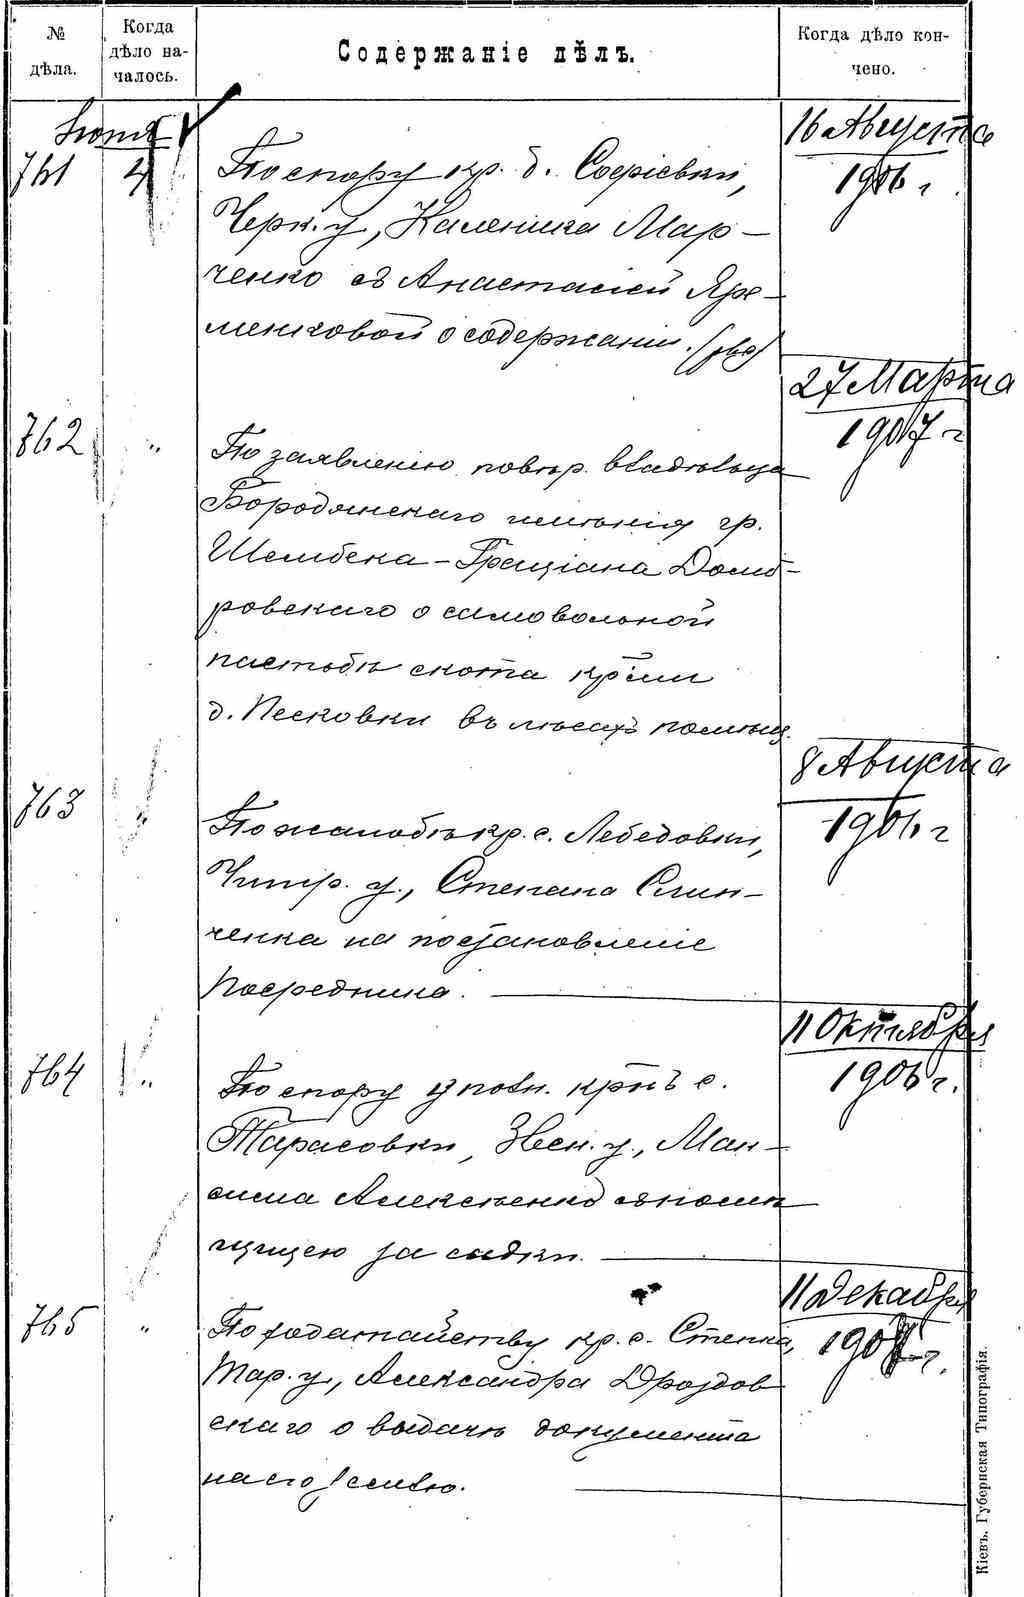 № дѣла.
Когда дѣло на-
чалось.
Содержаніе дѣлъ.
Когда дѣло кон-
чено.
Іюня
761 4 По спору кр. д. Софіевки,
Черк. у., Каленика Мар-
ченко съ Анастасіей Яре-
менковой о содержаніи.
16 Августа
1906 г.
762 „ По заявленію повѣр. владѣльца
Бородянскаго имѣнія гр.
Шембека - Граціана Домб-
ровскаго о самовольной
пастьбѣ скота кр-ми
д. Песковки въ лѣсахъ помѣщ.
27 Марта
1907 г
763 „ По жалобѣ кр. с. Лебедовки,
Чигир. у., Степана Слин-
ченка на постановленіе
Посредника.
8 Августа
1906 г
764 „ По спору уполн. кр-нъ с.
Тарасовки, Звен. у., Мак-
сима Алексѣенко съ помѣ
щицею за садки.
11 Октября
1906 г.
765 „ По ходатайству кр. с. Степка,
Тар. у., Александра Дроздов
скаго о выдачѣ документа
на его землю.
11 Декабря
1907 г.
Кіевъ. Губернская Типографія.